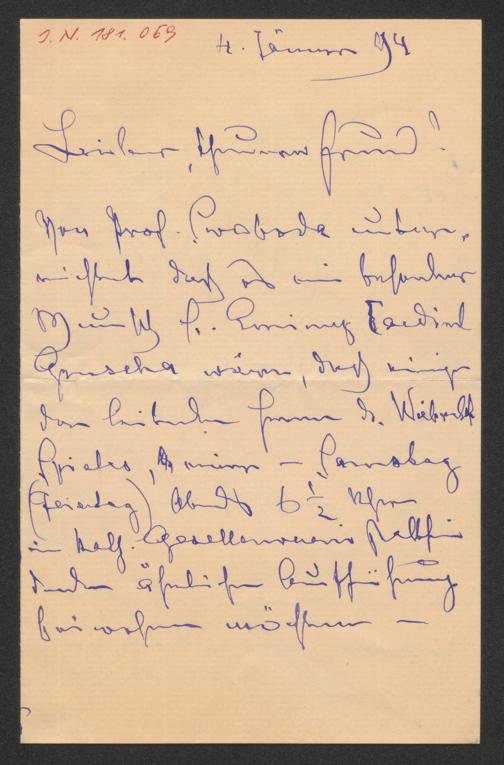 J. N. 181.069
4. Jänner 94
Lieber, theurer Freund!
Von Prof. Swoboda unter-
richtet daß es ein besonderer
Wunsch Sr. Eminenz Cardinal
Gruscha wäre, daß einige
der leitenden Herren d.
Spieles, – Samstag
(Feiertag) Abends 6 1/2 Uhr
im kath. Gesellenverein stattfin
denden ähnlichen Aufführung
beiwohnen möchten –